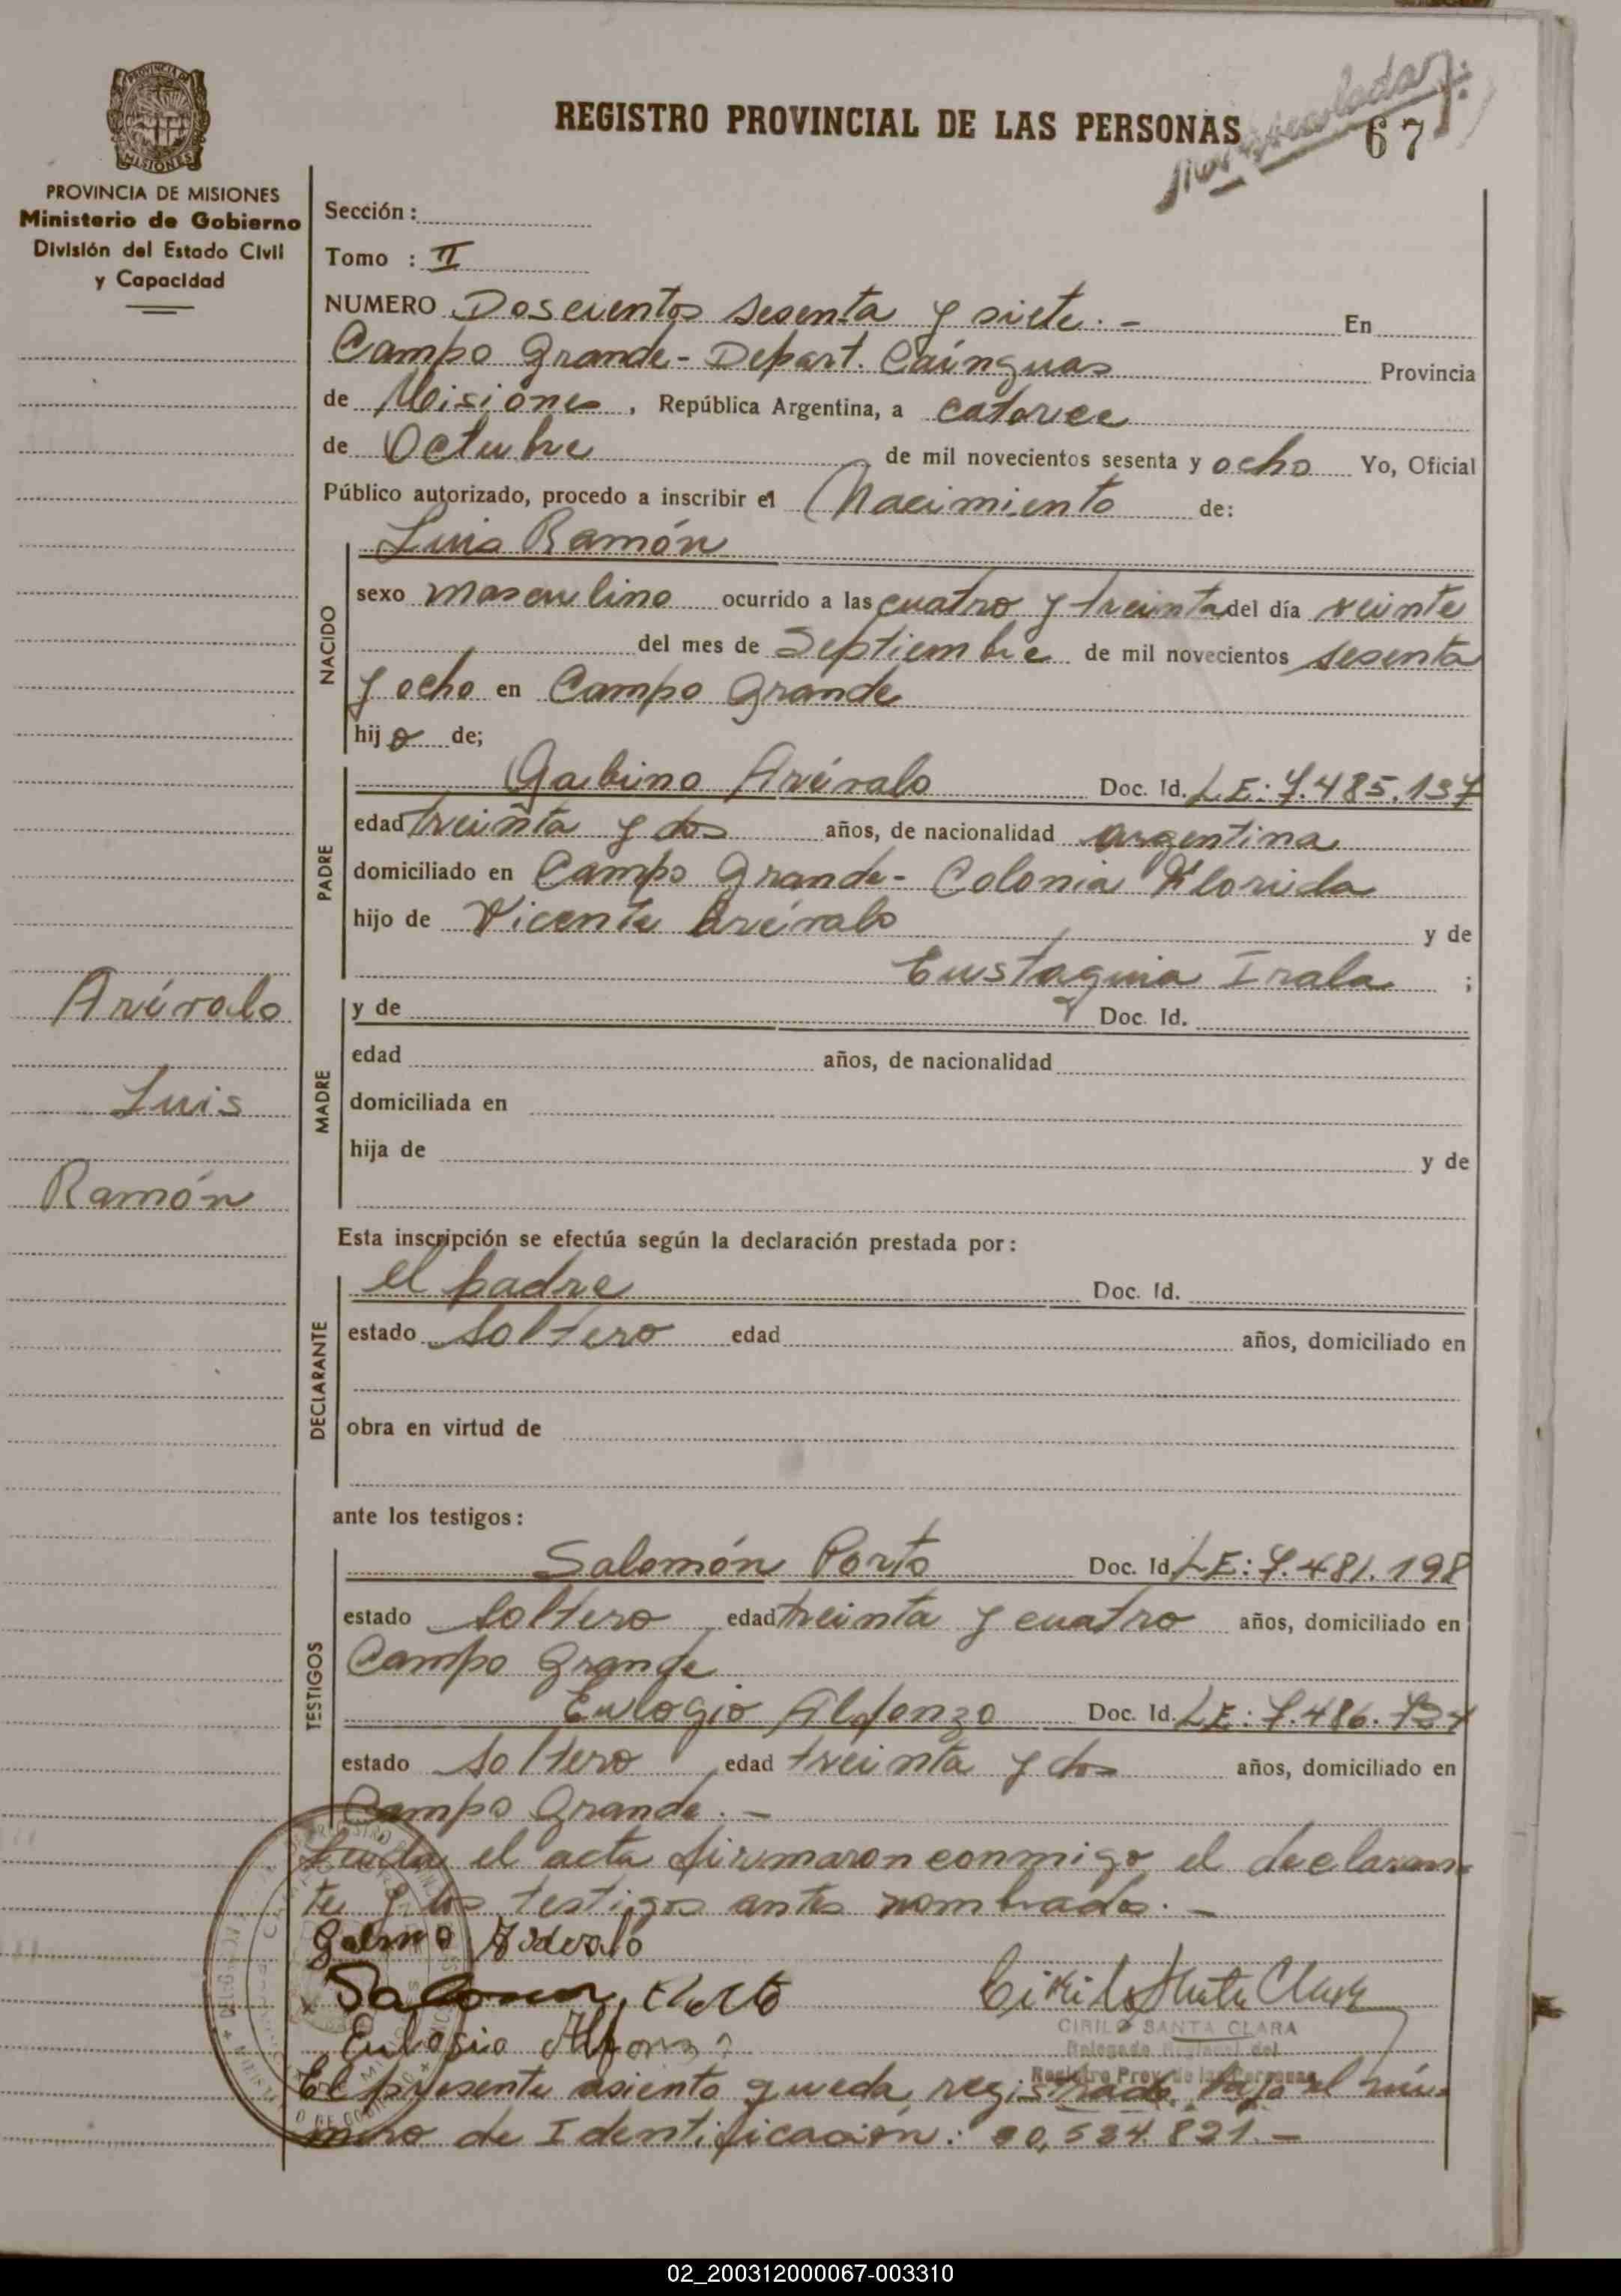 REGISTRO PROVINCIAL DE LAS PERSONAS
67
PROVINCIA DE MISIONES
Ministerio de Gobierno
División del Estado Civil
y Capacidad
Sección :
Tomo : II
NUMERO Doscientos sesenta y siete. - En
Campo Grande - Depart. Cainguas Provincia
de Misiones, República Argentina, a catorce
de Octubre de mil novecientos sesenta y ocho Yo, Oficial
Público autorizado, procedo a inscribir el Nacimiento de:
NACIDO
Luis Ramón
sexo masculino ocurrido a las cuatro y treinta del día veinte
del mes de Septiembre de mil novecientos sesenta
y ocho en Campo Grande
hijo de;
PADRE
Gabino Arévalo Doc. Id. LE: 7.485.137
edad treinta y dos años, de nacionalidad argentina
domiciliado en Campo Grande - Colonia Florida
hijo de Vicente Arévalo y de
Eustaquia Irala ;
Arévalo
Luis
Ramón
MADRE
y de Doc. Id.
edad años, de nacionalidad
domiciliada en
hija de y de
Esta inscripción se efectúa según la declaración prestada por :
DECLARANTE
el padre Doc. Id.
estado soltero edad años, domiciliado en
obra en virtud de
ante los testigos :
TESTIGOS
Salomón Porto Doc. Id. LE: 7.481.198
estado soltero edad treinta y cuatro años, domiciliado en
Campo Grande
Eulogio Alfonzo Doc. Id. LE: 7.486.734
estado soltero edad treinta y dos años, domiciliado en
Campo Grande. -
Leida el acta firmaron conmigo el declaran-
te y los testigos antes nombrados. -
CIRILO SANTA CLARA
Delegado Regional del
Registro Prov. de las Personas
El presente asiento queda registrado bajo el nú-
mero de Identificación: 20,534.821. -
02_200312000067-003310